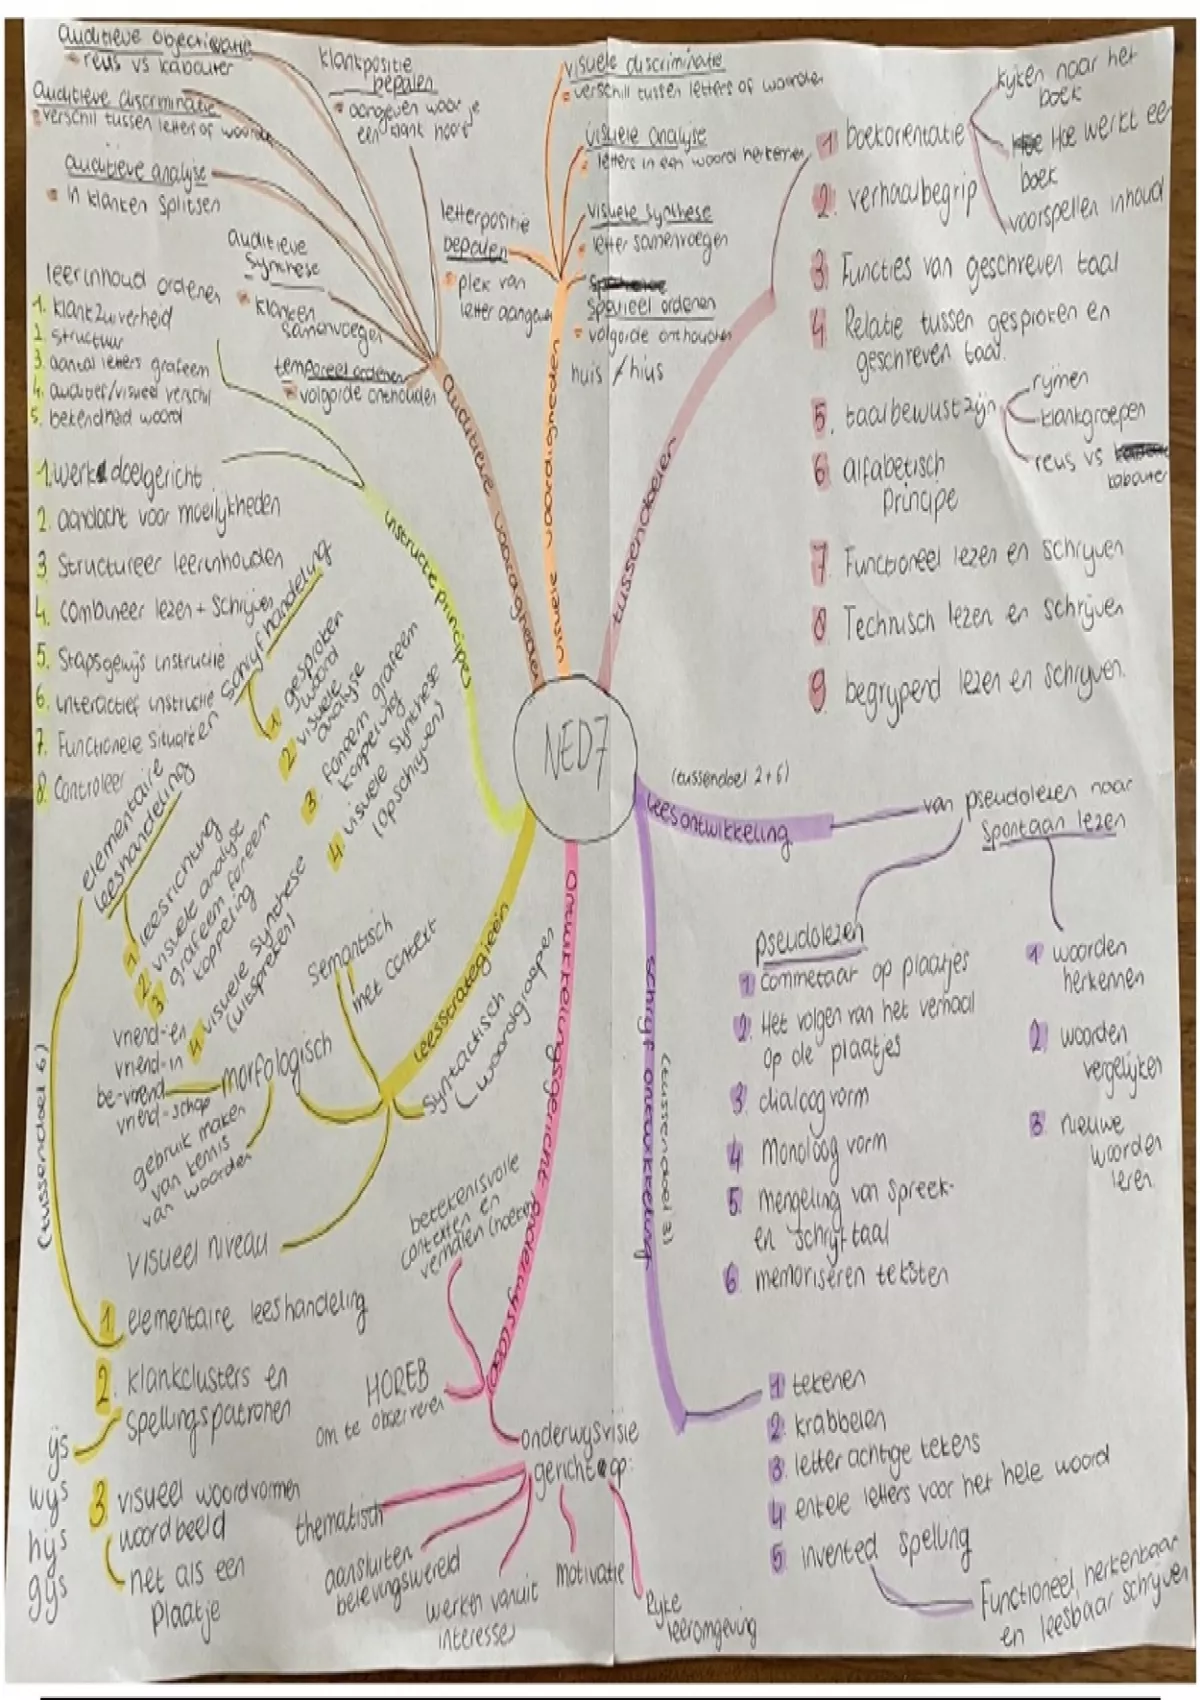 auditieve objectivatie
reus vs kabouter
auditieve discriminatie
verschil tussen letters of woorden
auditieve analyse
in klanken splitsen
auditieve
synthese
klanken
samenvoegen
temporeel ordenen
volgorde onthouden
klankpositie
bepalen
aangeven waar je
een klank hoort
auditieve vaardigheden
visuele discriminatie
verschil tussen letters of woorden
visuele analyse
letters in een woord herkennen
visuele synthese
letter samenvoegen
spatieel ordenen
volgorde onthouden
huis / hius
letterpositie
bepalen
plek van
letter aangeven
visuele vaardigheden
tussendoelen
1 boekorientatie
kijken naar het
boek
Hoe werkt een
boek
voorspellen inhoud
2. verhaalbegrip
3 Functies van geschreven taal
4 Relatie tussen gesproken en
geschreven taal.
5. taalbewustzijn
rijmen
klankgroepen
reus vs
kabouter
6 alfabetisch
Principe
7 Functioneel lezen en schrijven
8 Technisch lezen en schrijven
9 begrijpend lezen en schrijven.
leerinhoud ordenen
1. klankzuiverheid
2 structuur
3. aantal letters grafeem
4. auditief/visueel verschil
5. bekendheid woord
1. werk doelgericht
2. aandacht voor moeilijkheden
3 Structureer leerinhouden
4. combineer lezen + schrijven
5. Stapsgewijs instructie
6. interactief instructie
7. Functionele situatieën
8. Controleer
instructie principes
NED7
schrijfhandeling
1 gesproken
woord
2 visuele
analyse
3 foneem grafeem
koppeling
4 visuele synthese
(opschrijven)
elementaire
leeshandeling
1 leesrichting
2 visuele analyse
3. grafeem foneem
koppeling
4 visuele synthese
(uitspreken)
(tussendoel 6)
leesstrategieën
semantisch
met context
syntactisch
(woordgroepen
morfologisch
vriend-en
vriend-in
be-vriend
vriend-schap
gebruik maken
van kennis
van woorden
visueel niveau
1 elementaire leeshandeling
2. klankclusters en
spellingspatronen
ijs
wijs
hijs
gijs
3 visueel woordvormen
woordbeeld
net als een
plaatje
ontwikkelingsgericht onderwijs (OGO)
betekenisvolle
contexten en
verhalen (hoeken)
HOREB
om te observeren
onderwijsvisie
gericht op:
thematisch
aansluiten
belevingswereld
werken vanuit
interesses
motivatie
Rijke
leeromgeving
(tussendoel 2+6)
leesontwikkeling
van pseudolezen naar
spontaan lezen
pseudolezen
1 commetaar op plaatjes
2. Het volgen van het verhaal
op de plaatjes
3 dialoogvorm
4 monoloog vorm
5 mengeling van spreek-
en schrijftaal
6 memoriseren teksten
1 woorden
herkennen
2 woorden
vergelijken
3 nieuwe
woorden
leren.
schrijf ontwikkeling
(tussendoel 3)
1 tekenen
2 krabbelen
3 letterachtige tekens
4 enkele letters voor het hele woord
5 invented spelling
Functioneel, herkenbaar
en leesbaar schrijven